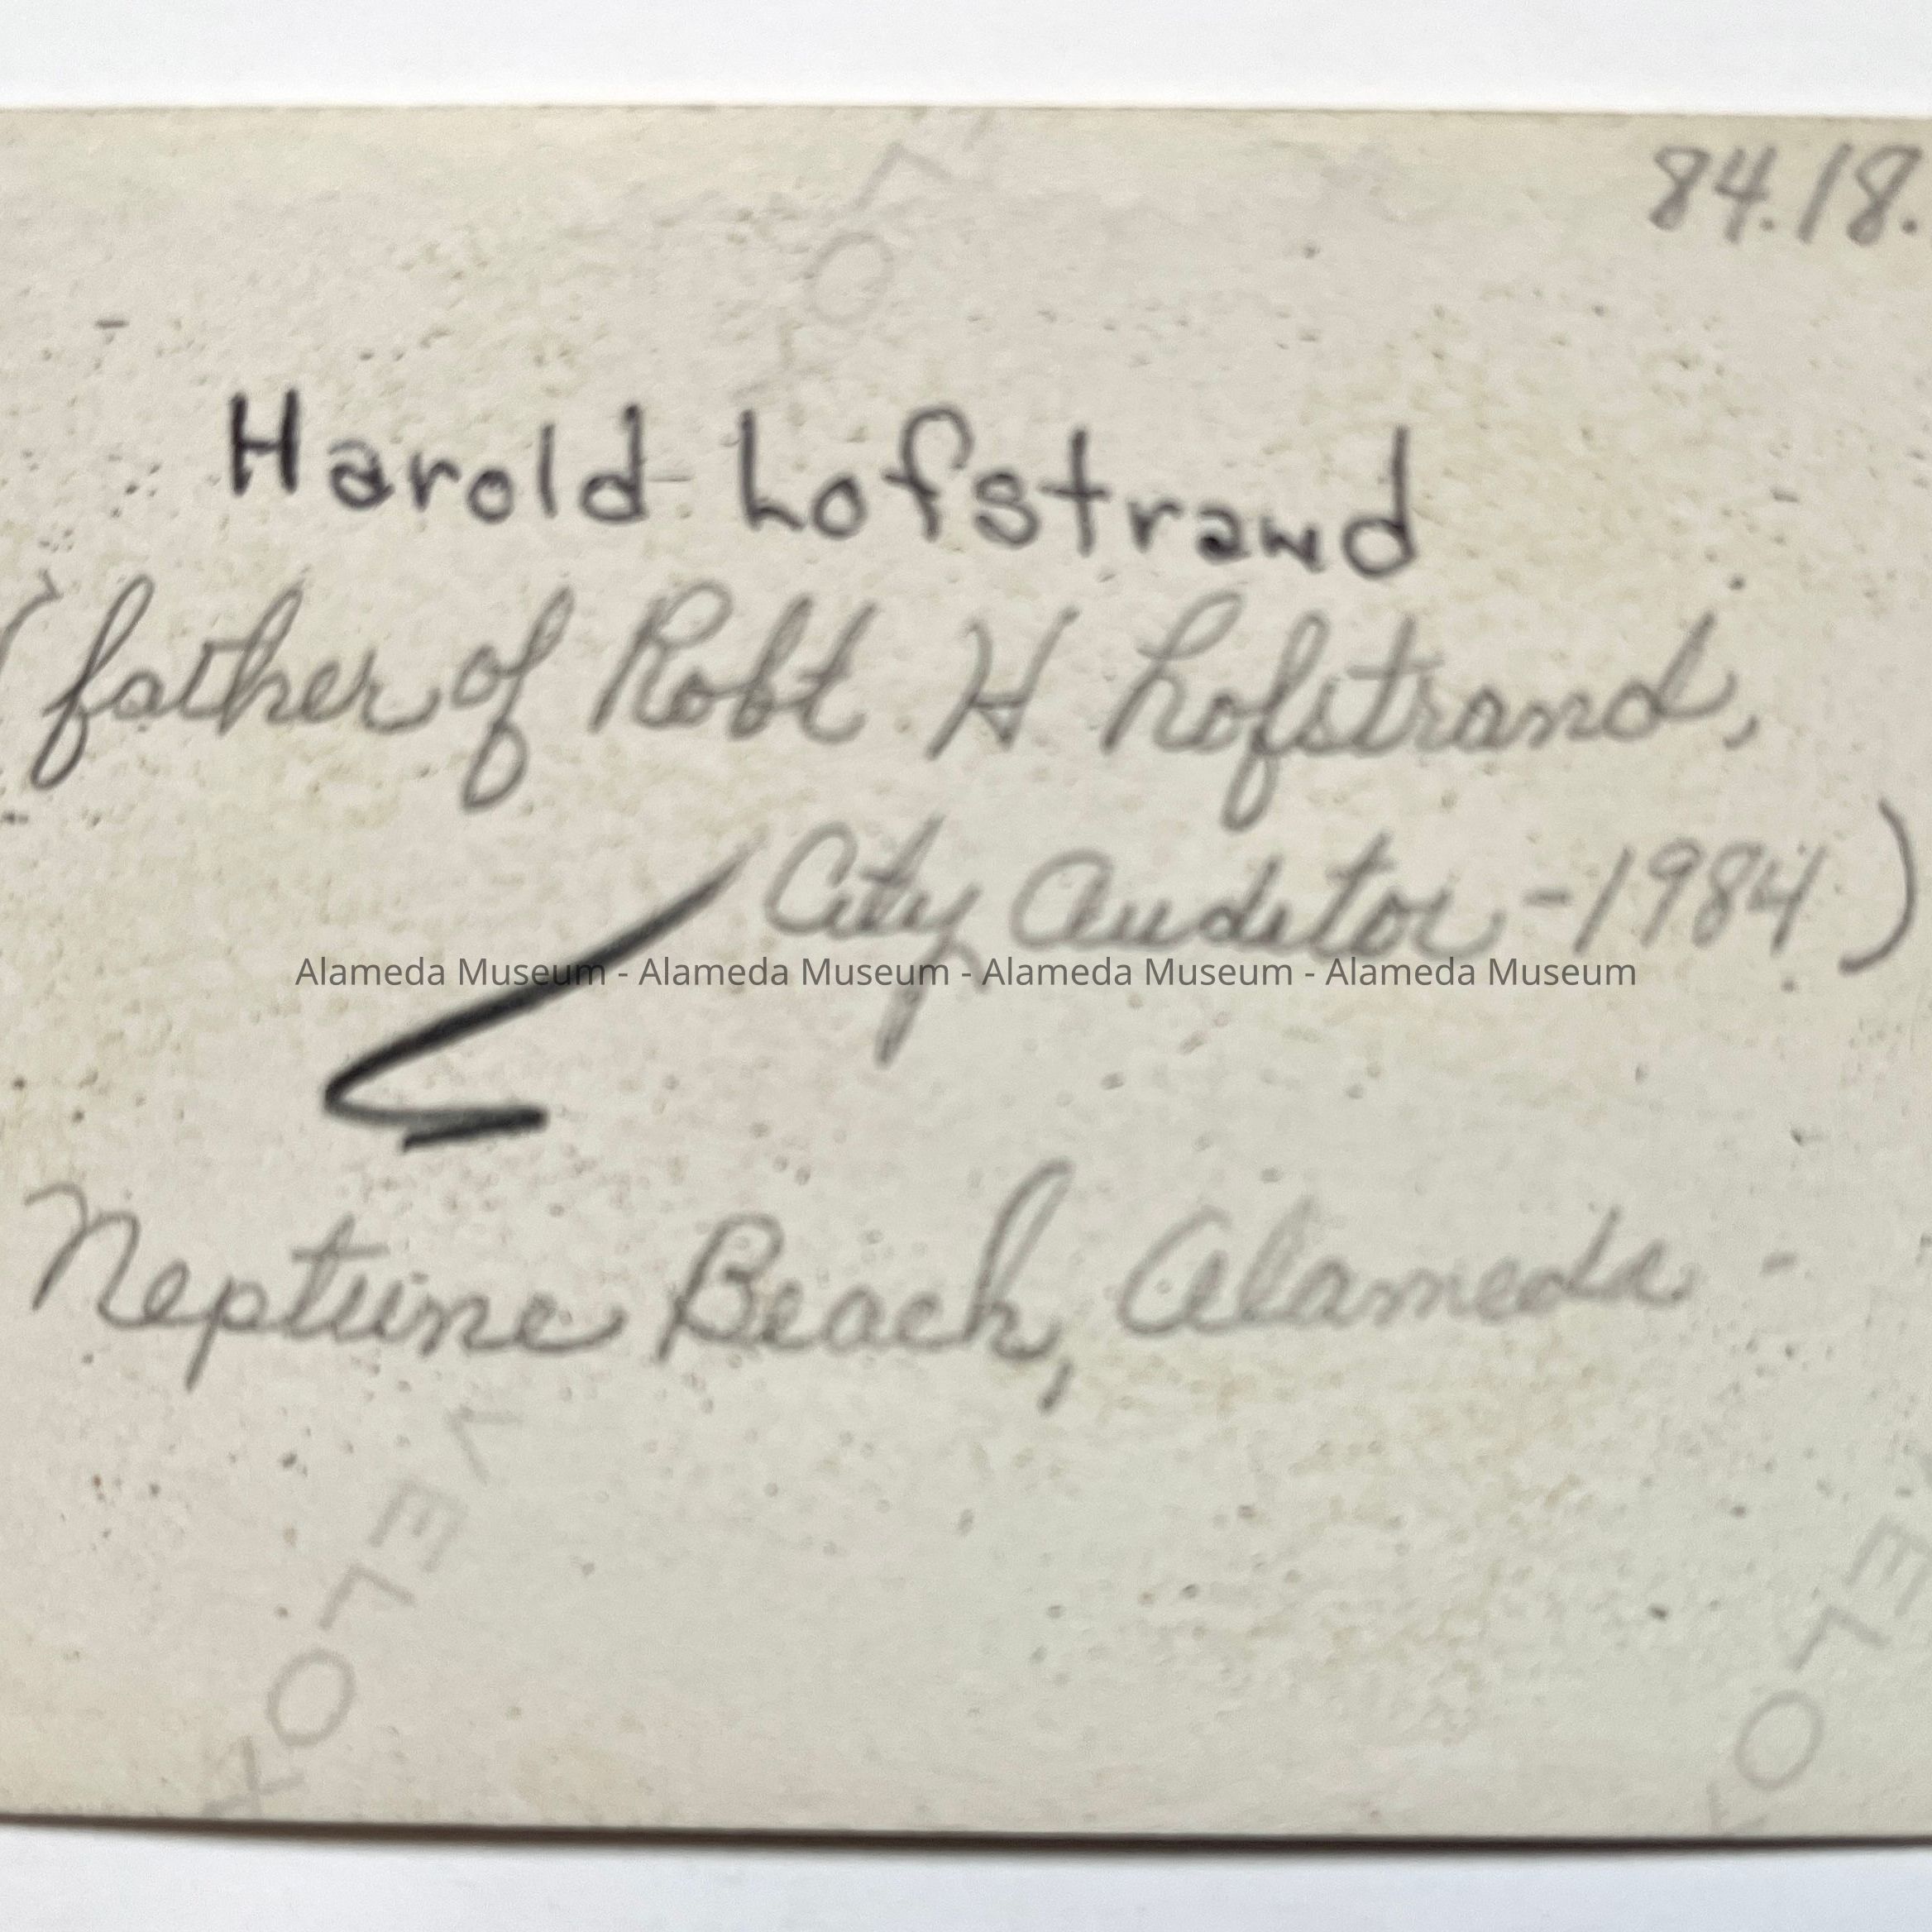 84.18.
Harold Lofstrand
(father of Robt H Lofstrand,
City Auditor - 1984)
Alameda Museum - Alameda Museum - Alameda Museum - Alameda Museum
Neptune Beach, Alameda -
VELOX
ELO